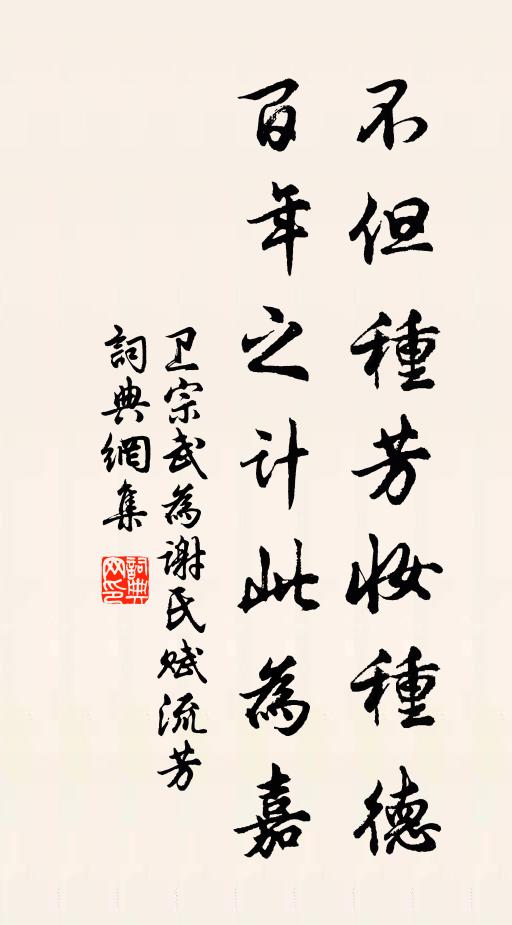 不但種芳妆種德
百年之计此為嘉
卫宗武為谢民赋流芳
詞典網集
詞典
网印